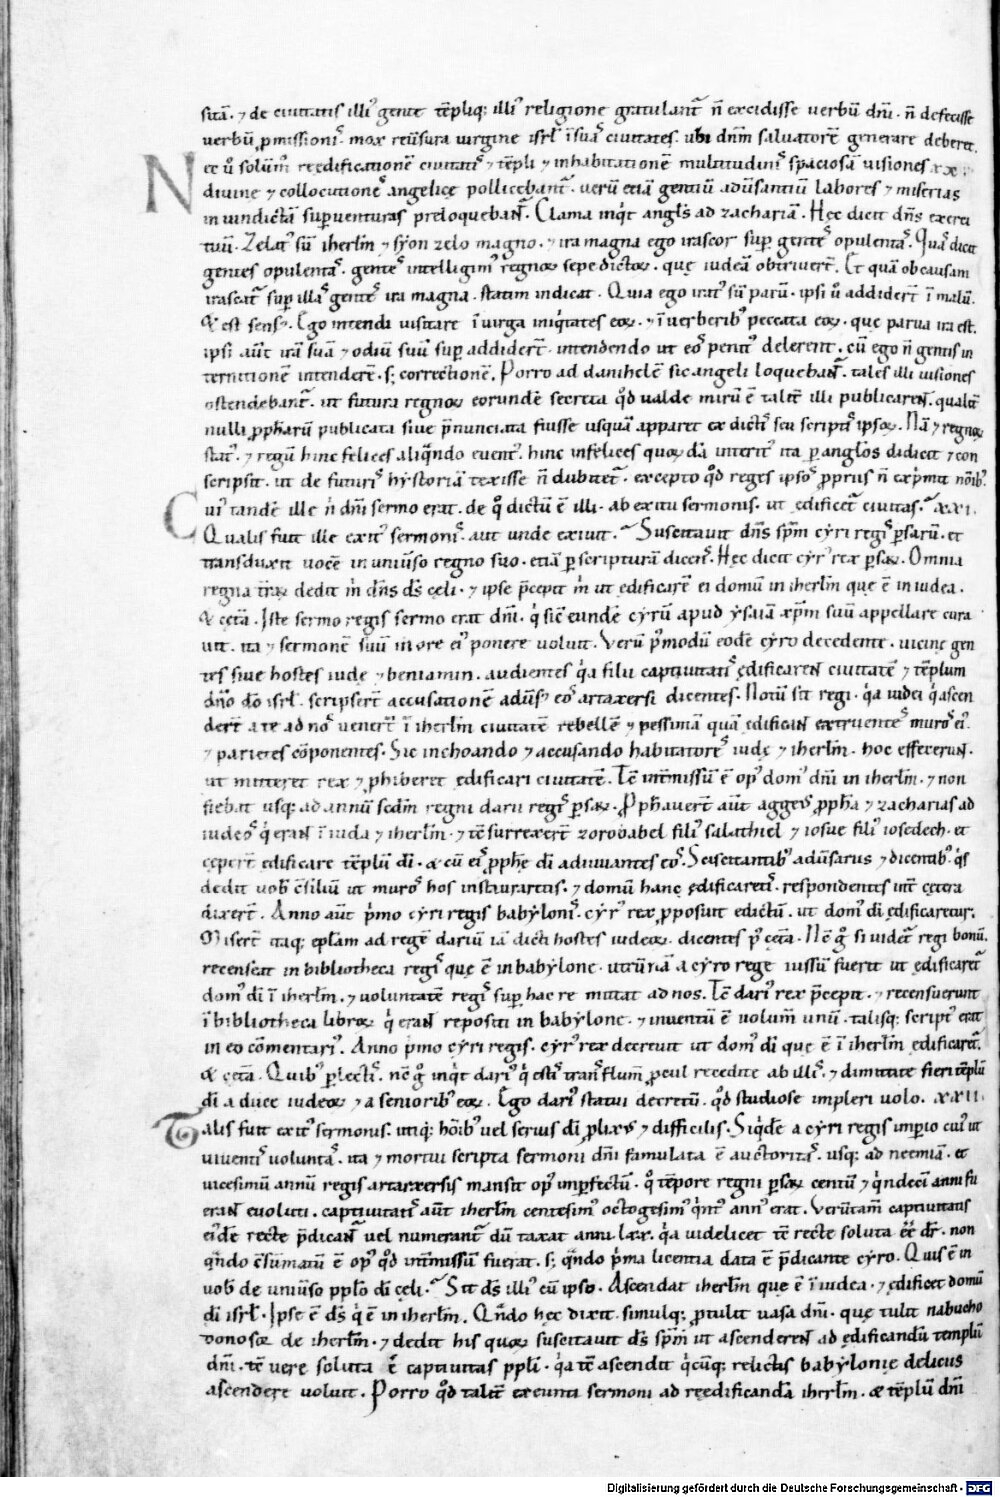 sitā · ⁊ de ciuitatis illiꝰ gente tēpliq; illiꝰ religione gratulant̄ n̄ excidisse uerbū dn̄i · n̄ defecisse
uerbū ꝓmissioniˢ · mox reuͥsura uirgine isrl̄ ī suaˢ ciuitates · ubi dnm̄ saluatorē generare deberet ·
Nec u͛ solum̄ reędificationē ciuitatiˢ ⁊ tēpli ⁊ inhabitationē multitudiniˢ spaciosā uisiones xx
diuine ⁊ collocutioneˢ angelicę pollicebant̄ · uerū etiā gentiū aduͥsantiū labores ⁊ miserias
in uindictā suꝑuenturas preloqueban̄t · Clama inqͥt angl̄s ad zachariā · Hęc dicit dn̄s exerci
tuū · Zelatꝰ sū iherl̄m ⁊ syon zelo magno · ⁊ ira magna ego irascor suꝑ genteˢ opulentaˢ · Quaˢ dicit
gentes opulentaˢ · genteˢ intelligimꝰ regnoꝝ sepe dictoꝝ · quę iudeā obtriuert̄ · Et quā ob causam
irascat̄ suꝑ illaˢ genteˢ ira magna · statim indicat · Quia ego iratꝰ sū parū · ipsi u͛ addidert̄ ī malū ·
& est sensꝰ · Ego intendi uisitare ī uirga iniqͥtates eoꝝ · ⁊ ī uerberibꝰ peccata eoꝝ · que parua ira est ·
ipsi aut̄ irā suā ⁊ odiū suū suꝑ addidert̄ · intendendo ut eoˢ penitꝰ delerent · cū ego n̄ gentis in
ternitionē intenderē · s; correctionē · Porro ad danihelē sic angeli loqueban̄t · tales illi uisiones
ostendebant̄ · ut futura regnoꝝ eorundē secreta qͦd ualde mirū ē talit̄ illi publicaren̄t · qualit̄
nulli ꝓpħarū publicata siue p̄nunciata fuisse usquā apparet ex dictiˢ seu scriptiˢ ipsoꝝ · Nā ⁊ regnoꝝ
statꝰ · ⁊ regū hinc felices aliqͣndo euentꝰ · hinc infelices quoꝝdā interitꝰ ita ꝑ angl̄os didicit ⁊ con
scripsit · ut de futuriˢ hystoriā texisse n̄ dubitet̄ · excepto qͦd reges ipsoˢ ꝓpriis n̄ exp̄mit noī̄bꝰ
Cuiꝰ tandē ille n̄ dn̄i sermo erat · de qͦ dictū ē illi · ab exitu sermonis · ut edificet̄ ciuitas · xxi ·
Qualis fuit ille exitꝰ sermoniˢ · aut unde exiuit · Suscitauit dn̄s sp̄m cyri regiˢ ꝑsarū · et
transduxit uocē in uniuͥso regno suo · etiā ꝑ scripturā dicenˢ · Hęc dicit cyrꝰ rex ꝑsaꝝ · Omnia
regna tr̄aꝝ dedit m̄ dn̄s d̄s cęli · ⁊ ipse p̄cepit m̄ ut edificarē ei domū in iherl̄m que ē in iudea ·
& cęta · Iste sermo regis sermo erat dn̄i · qͥ sic̄ eundē cyrū apud ysaiā xp̄m suū appellare cura
uit · ita ⁊ sermonē suū in ore eiꝰ ponere uoluit · Verū pͦmodū eodē cyro decedente · uicinę gen
tes siue hostes iudę ⁊ beniamin · audientes qͥa filii captiuitatiˢ ędificaren̄t ciuitatē ⁊ tēplum
dn̄o dō isrl̄ · scripsert̄ accusationē aduͥsꝰ eoˢ artaxersi dicentes · Notū sit regi · qͥa iudei qͥ ascen
dert̄ a te ad noˢ uenert̄ ī iherl̄m ciuitatē rebellē ⁊ pessimā quā ędifican̄t exstruenteˢ muroˢ eiꝰ
⁊ parietes cōponentes · Sic inchoando ⁊ accusando habitatoreˢ iudę ⁊ iherl̄m · hoc effecerun̄t ·
ut mitteret rex ⁊ ꝓhiberet ędificari ciuitatē · Tc̄ int̄missū ē opꝰ domꝰ dn̄i in iherl̄m · ⁊ non
fiebat usq; ad annū scd̄m regni darii regiˢ ꝑsaꝝ · Ꝓpħauert̄ aut̄ aggeus ꝓpħa ⁊ zacharias ad
iudeoˢ qͥ eran̄t ī iuda ⁊ iherl̄m · ⁊ tc̄ surrexert̄ zorobabel filiꝰ salathiel ⁊ iosue filiꝰ iosedech · et
cępert̄ edificare tēplū di͞ · & cū eiˢ ꝓpħę di͞ adiuuantes eoˢ · Sciscitantibꝰ aduͥsariis ⁊ dicentibꝰ · qͥs
dedit uob̄ c̄siliū ut muroˢ hos instauraretis · ⁊ domū hanc ędificaretiˢ · respondentes int̄ cętera
dixert̄ · Anno aut̄ pͥmo cyri regis babyloniˢ · cyrꝰ rex ꝓposuit edictū · ut domꝰ di͞ ędificaretur ·
Misert̄ itaq; epl̄am ad regē dariū iā dicti hostes iudeoꝝ · dicentes pͦ cęta · Nc̄ gͦ si uidet̄ regi bonū ·
recenseat in bibliotheca regiˢ quę ē in babylone · utrū nā a cyro rege iussū fuerit ut ędificaret̄
domꝰ di͞ ī iherl̄m · ⁊ uoluntatē regiˢ suꝑ hac re mittat ad nos · Tc̄ dariꝰ rex p̄cepit · ⁊ recensuerunt
ī bibliotheca libroꝝ qͥ eran̄t repositi in babylone · ⁊ inuentū ē uolum̄ unū · talisq; scriptꝰ erat
in eo cōmentariꝰ · Anno pͥmo cyri regis · cyrꝰ rex decreuit ut domꝰ di͞ quę ē ī iherl̄m ędificaret̄ ·
& cęta · Quibꝰ ꝑlectiˢ · nc̄ gͦ inqͥt dariꝰ qͥ estiˢ tranˢ flum̄ ꝓcul recedite ab illiˢ · ⁊ dimittite fieri tēplū
di͞ a duce iudeoꝝ ⁊ a senioribꝰ eoꝝ · Ego dariꝰ statui decretū · qͦd studiose impleri uolo · xxii ·
Talis fuit exitꝰ sermonis · utiq; hōibꝰ uel seruis di͞ ꝓlixꝰ ⁊ difficilis · Siqͥdē a cyri regis imꝑio cuiꝰ ut
uiuentiˢ uoluntaˢ · ita ⁊ mortui scripta sermoni dn̄i famulata ē auctoritaˢ · usq; ad neemiā · et
uicesimū annū regis artarxersis mansit opꝰ imꝑfectū · qͦ tēpore regni ꝑsaꝝ centū ⁊ qͥndeci͞ anni fu
eran̄t euoluti · captiuitatiˢ aut̄ iherl̄m centesimꝰ octogesimꝰ qͥntꝰ annꝰ erat · Verūtam̄ captiuitatis
eiꝰdē recte p̄dican̄t uel numerant̄ dū taxat anni lxx · qͥa uidelicet tc̄ recte soluta ēē dr̄ · non
qͣndo c̄sūmatū ē opꝰ qͦd int̄missū fuerat · s; qͣndo pͥma licentia data ē p̄dicante cyro · Quis ē in
uob̄ de uniuͥso pplo di͞ cęli · Sit d̄s illiꝰ cū ipso · Ascendat iherl̄m que ē ī iudea · ⁊ ędificet domū
di͞ isrl̄ · Ipse ē d̄s qͥ ē in iherl̄m · Qͣndo hęc dixit · simulq; ꝓtulit uasa dn̄i · quę tulit nabucho
donosor de iherl̄m · ⁊ dedit his quoꝝ suscitauit d̄s sp̄m ut ascenderen̄t ad ędificandū templū
dn̄i · tc̄ uere soluta ē captiuitas ppl̄i · qͥa tc̄ ascendit qͥcūq; relictis babylonię delicus
ascendere uoluit · Porro qͦd talit̄ exeunti sermoni ad reędificandā iherl̄m · & tēplū dn̄i
Digitalisierung gefördert durch die Deutsche Forschungsgemeinschaft - DFG